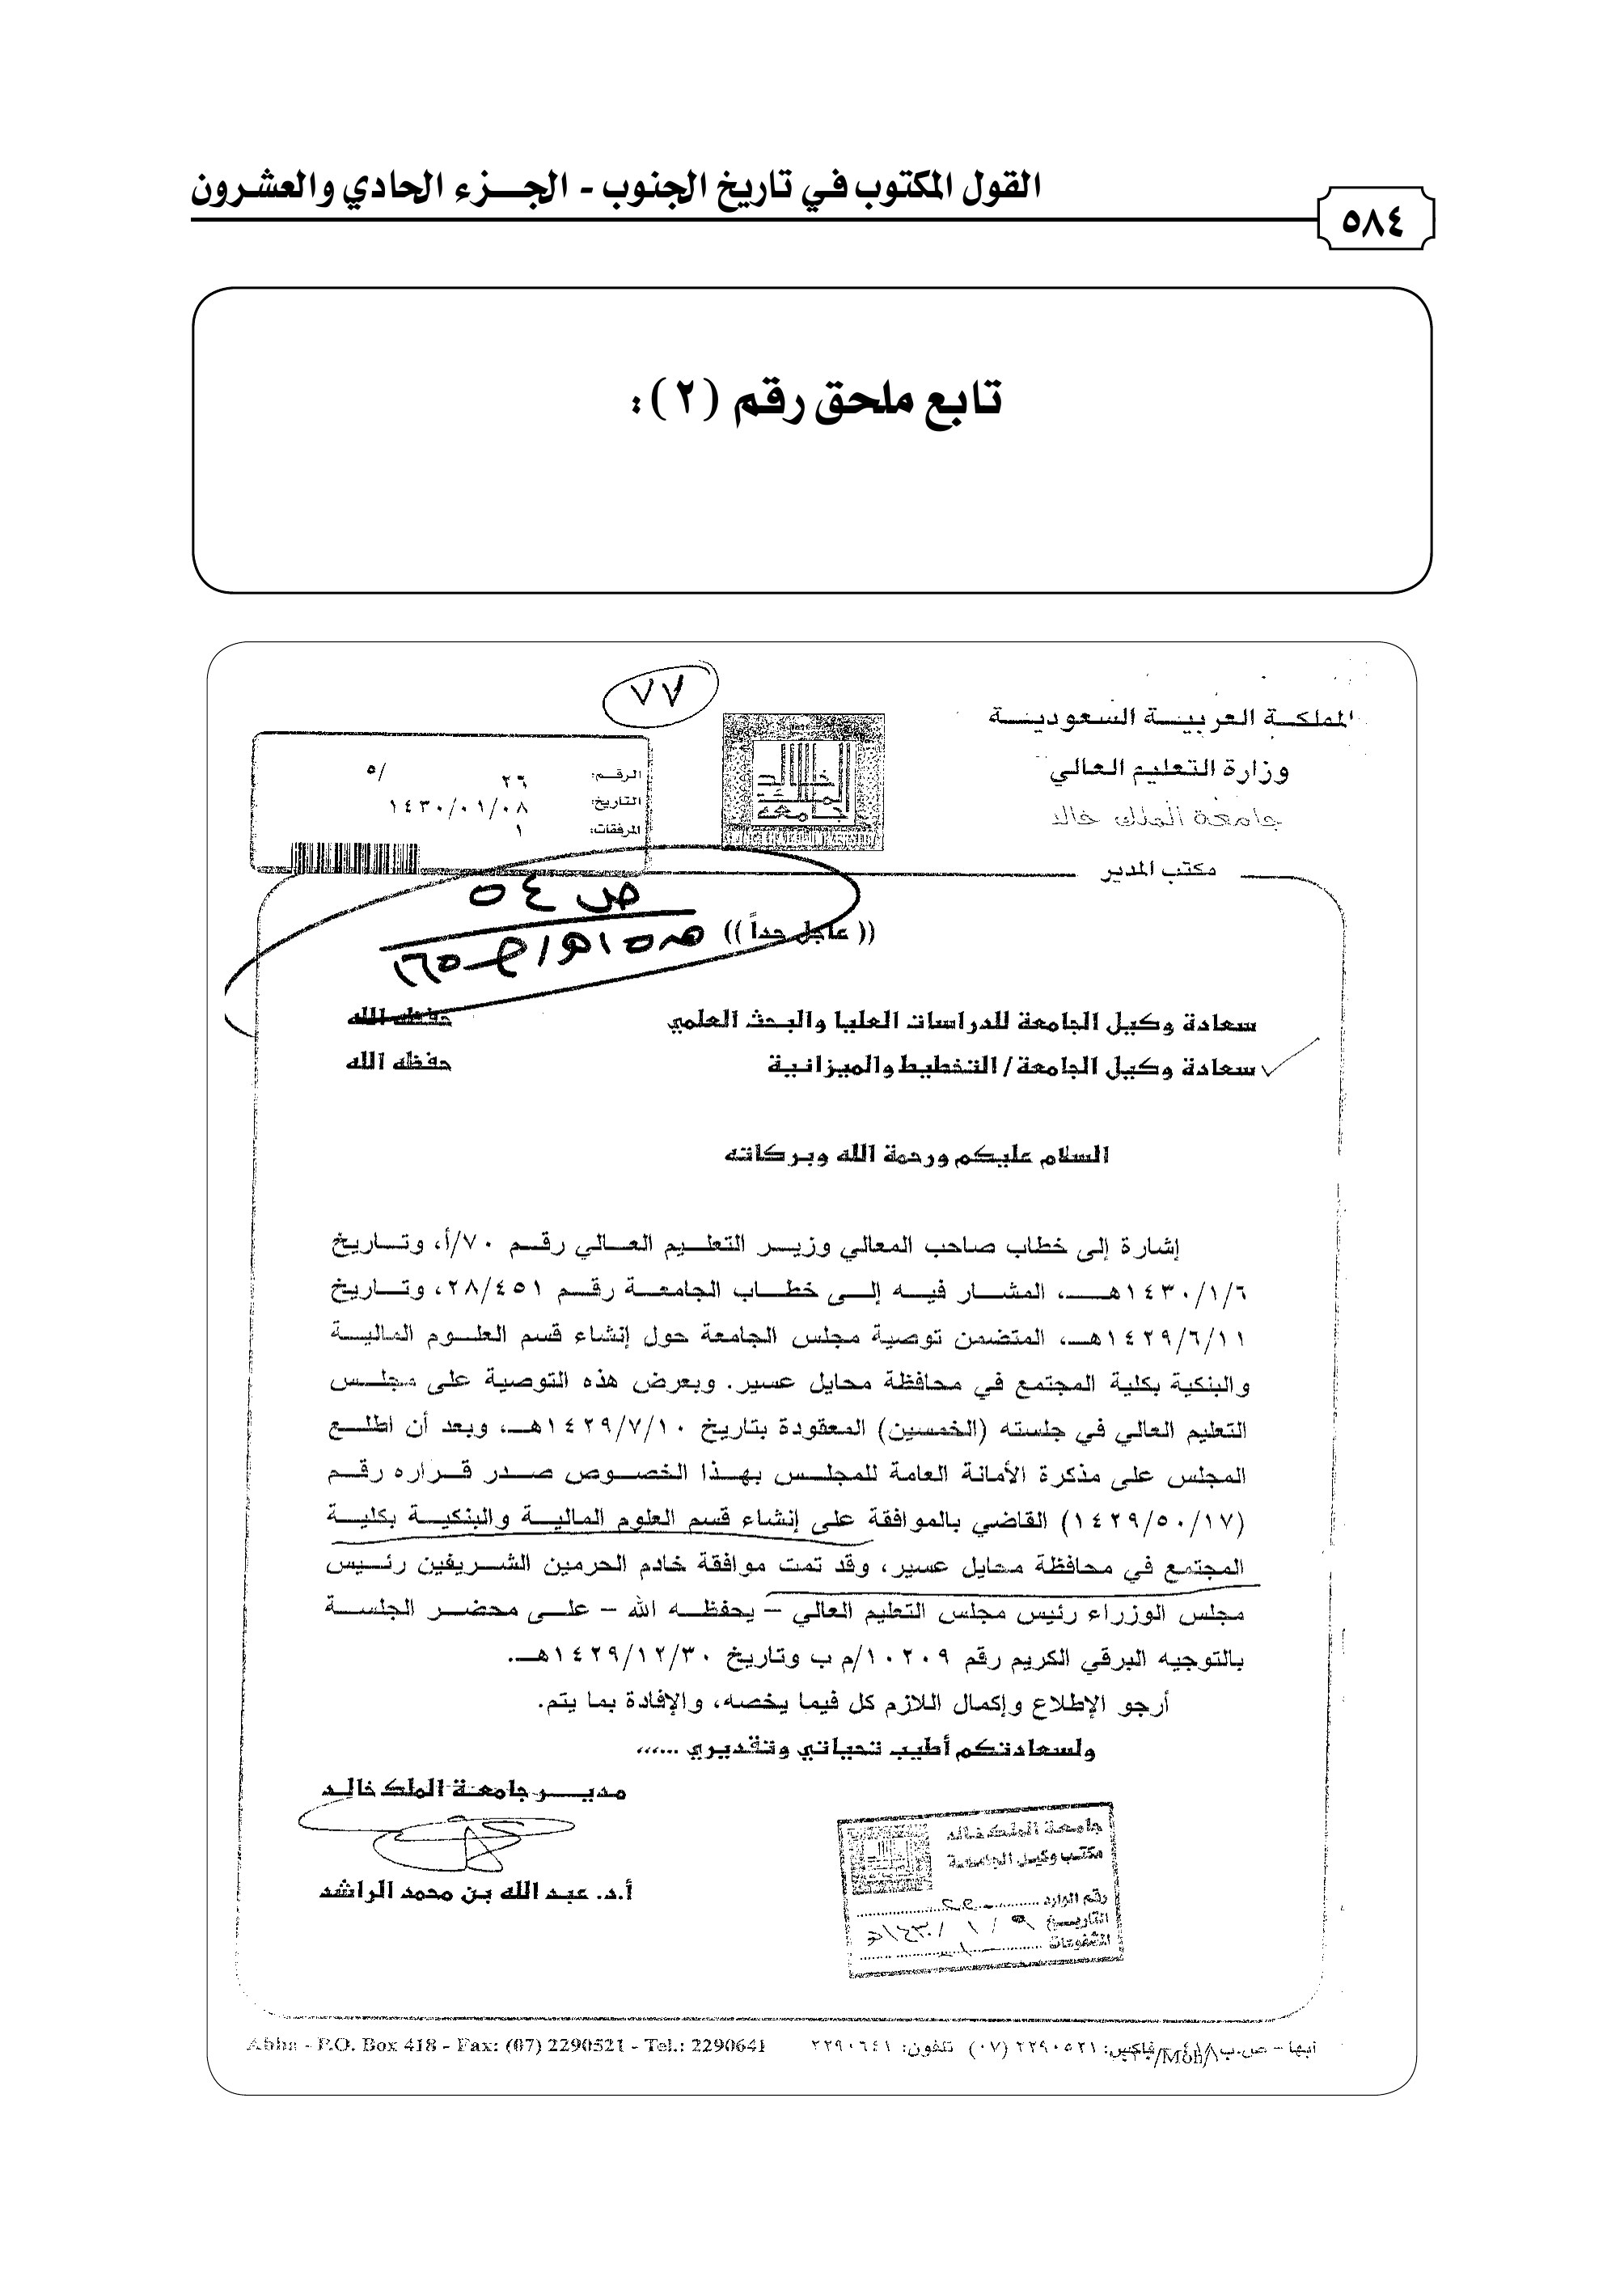 القول المكتوب في تاريخ الجنوب - الجـــزء الحادي والعشــرون
٥٨٤
تابع ملحق رقم (٢):
٧٧
المملكــة العربيــة السعوديــة
وزارة التعليم العالي
جامعة الملك خالد
مكتب المدير
خالد
الملك
جامعة
الرقــم: ٢٦ /٥
التاريخ: ١٤٣٠/٠١/٠٨
المرفقات: ١
ص ٤٥
(( عاجل جداً ))
سعادة وكيل الجامعة للدراسات العليا والبحث العلمي حفظه الله
سعادة وكيل الجامعة/ التخطيط والميزانية حفظه الله
السلام عليكم ورحمة الله وبركاته
إشارة إلى خطاب صاحب المعالي وزيــر التعلــيم العــالي رقــم ٧٠/أ، وتــاريخ
١٤٣٠/١/٦هــ، المشــار فيــه إلــى خطــاب الجامعــة رقــم ٢٨/٤٥١، وتــاريخ
١٤٢٩/٦/١١هــ، المتضمن توصية مجلس الجامعة حول إنشاء قسم العلــوم الماليــة
والبنكية بكلية المجتمع في محافظة محايل عسير. وبعرض هذه التوصية على مجلــس
التعليم العالي في جلسته (الخمسين) المعقودة بتاريخ ١٤٢٩/٧/١٠هــ، وبعد أن اطلــع
المجلس على مذكرة الأمانة العامة للمجلــس بهــذا الخصــوص صــدر قــراره رقــم
(١٤٢٩/٥٠/١٧) القاضي بالموافقة على إنشاء قسم العلوم الماليــة والبنكيــة بكليــة
المجتمع في محافظة محايل عسير، وقد تمت موافقة خادم الحرمين الشــريفين رئــيس
مجلس الوزراء رئيس مجلس التعليم العالي – يحفظــه الله – علــى محضــر الجلســة
بالتوجيه البرقي الكريم رقم ١٠٢٠٩/م ب وتاريخ ١٤٢٩/١٢/٣٠هــ.
أرجو الإطلاع وإكمال اللازم كل فيما يخصه، والإفادة بما يتم.
ولسعادتكم أطيب تحياتي وتقديري ،،،...
مديـــر جامعـة الملك خالـد
أ.د. عبد الله بن محمد الراشد
جامعـة الملك خالد
مكتب وكيل الجامعـة
رقم الوارد
التاريـخ
المشفوعات
Abha - P.O. Box 418 - Fax: (07) 2290521 - Tel.: 2290641
أبها – ص.ب فاكس: ٢٢٩٠٥٢١ (٠٧) تلفون: ٢٢٩٠٦٤١